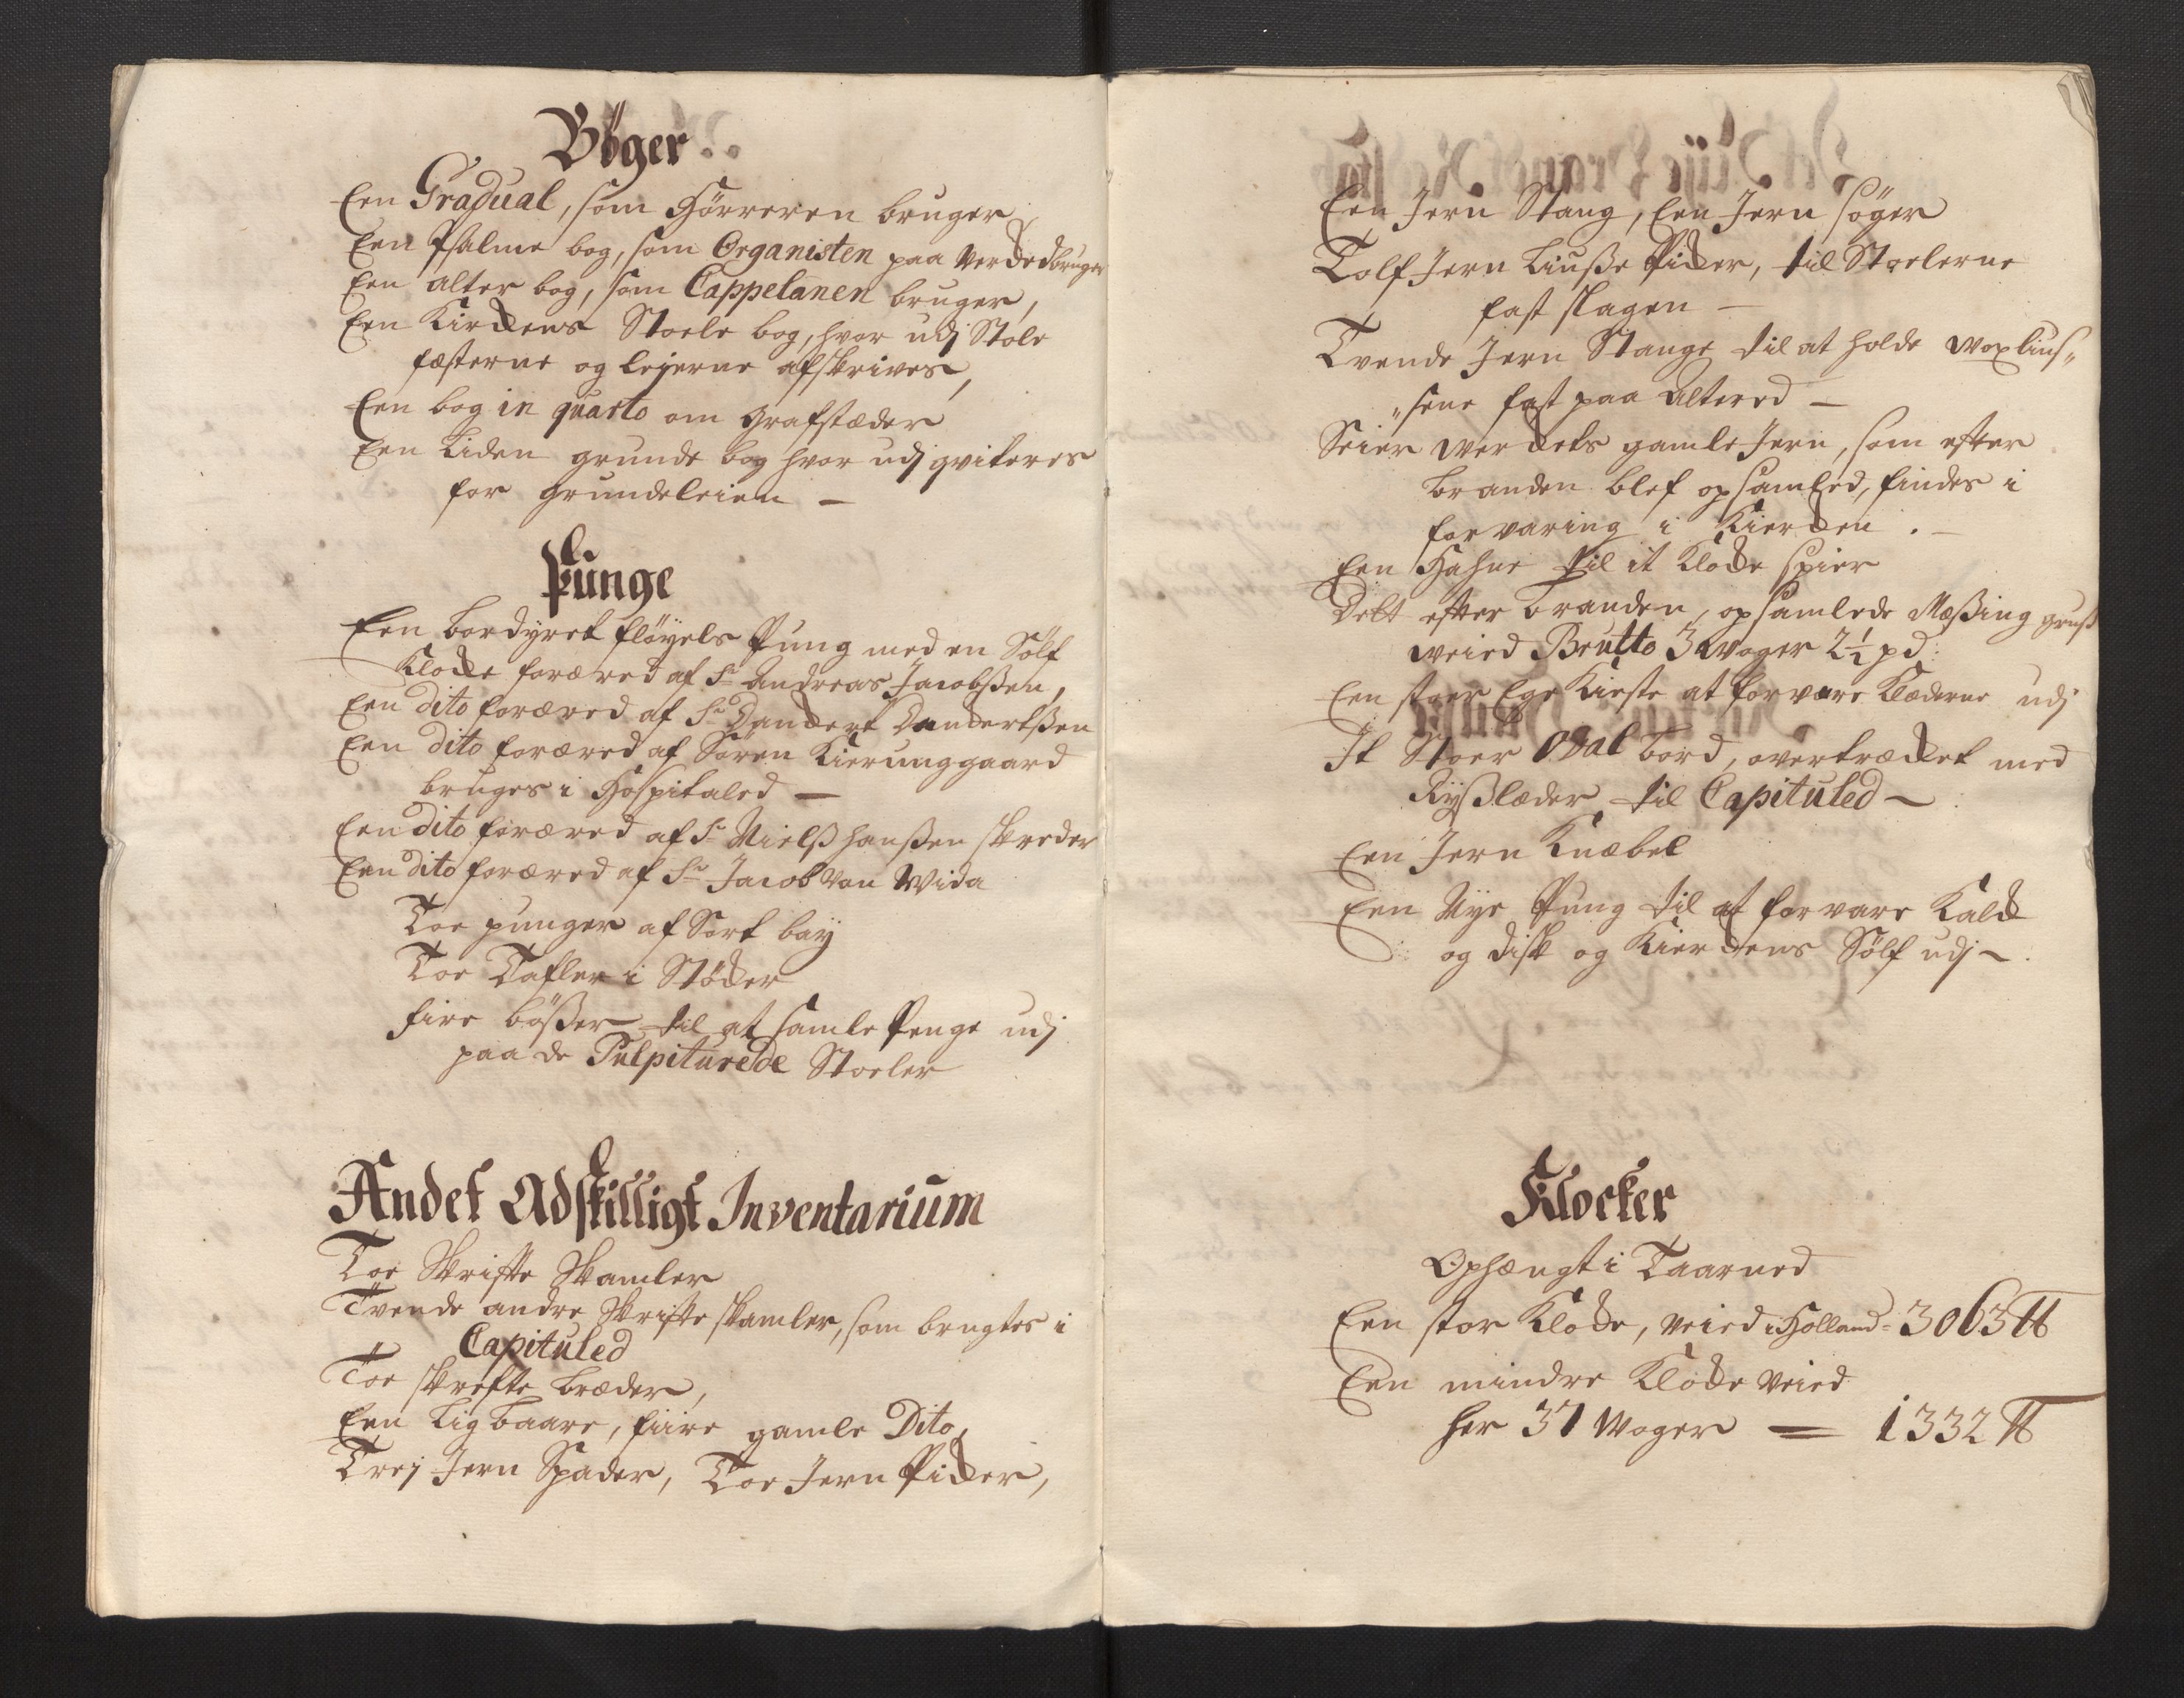 Bøger
Een Gradual, som Hörreren bruger
Een Psalme bog, som Organisten paa Verckedbruger
Een alter bog, som Cappelanen bruger,
Een Kirckens Stoele bog, hvor udj Stole
fæsterne og lejerne afskrives,
Een bog in quarto om Grafstæder
Een Liden grunde bog hvor udj qviteres
for Grundeleien —
Punge
Een bordyret fløyels Pung med en Sölf
Klocke foræred af Sr Andreas Jacobßen,
Een dito foræred af Sr Danckert Danckertßen
Een dito foræred af Sören Kierunggaard
bruges i Hospitaled —
Een dito foræred af Sr Nielß Hanßen skreder
Een dito foræred af Sr Jacob Von Wida
Toe punger af Sort bay
Toe Tafler i Stöcker
fire bößer til at samle Penge udj
paa de Pulpiturede Stoeler
Andet Adskilligt Inventarium
Toe Skrifte Skamler
Tvende andre Skrifte skamler, som brugtes i
Capituled
Toe skrifte bræder,
Een Lig baare, fiire gamle Dito,
Trej Jern Spader, Toe Jern Picker,
Een Jern Stang, Een Jern söger
Tolf Jern Liuße Picker, til Stoelerne
fast slagen —
Tvende Jern Stange til at holde woxlius„
„sene fast paa Altered —
Seier werckets gamle Jern, som efter
branden blef opsamled, findes i
forvaring i Kiercken. —
Een Hahne til it Klocke spier
Delt efter branden, opsamlede Meßing gruß
weied Brutto 3 woger 2½ pd:
Een stoer Ege Kieste at forvare Klæderne udj
It Stoer Oval bord, overtrækket med
Rysslæder til Capituled —
Een Jern Knæbel
Een Nye Pung til at forvare Kalck
og disk og Kierckens Sölf udj —
Klocker
Ophængt i Taarned
Een stor Klocke, veied i Holland = 3063 ℔
Een mindre Klocke veied
her 37 Woger = 1332 ℔